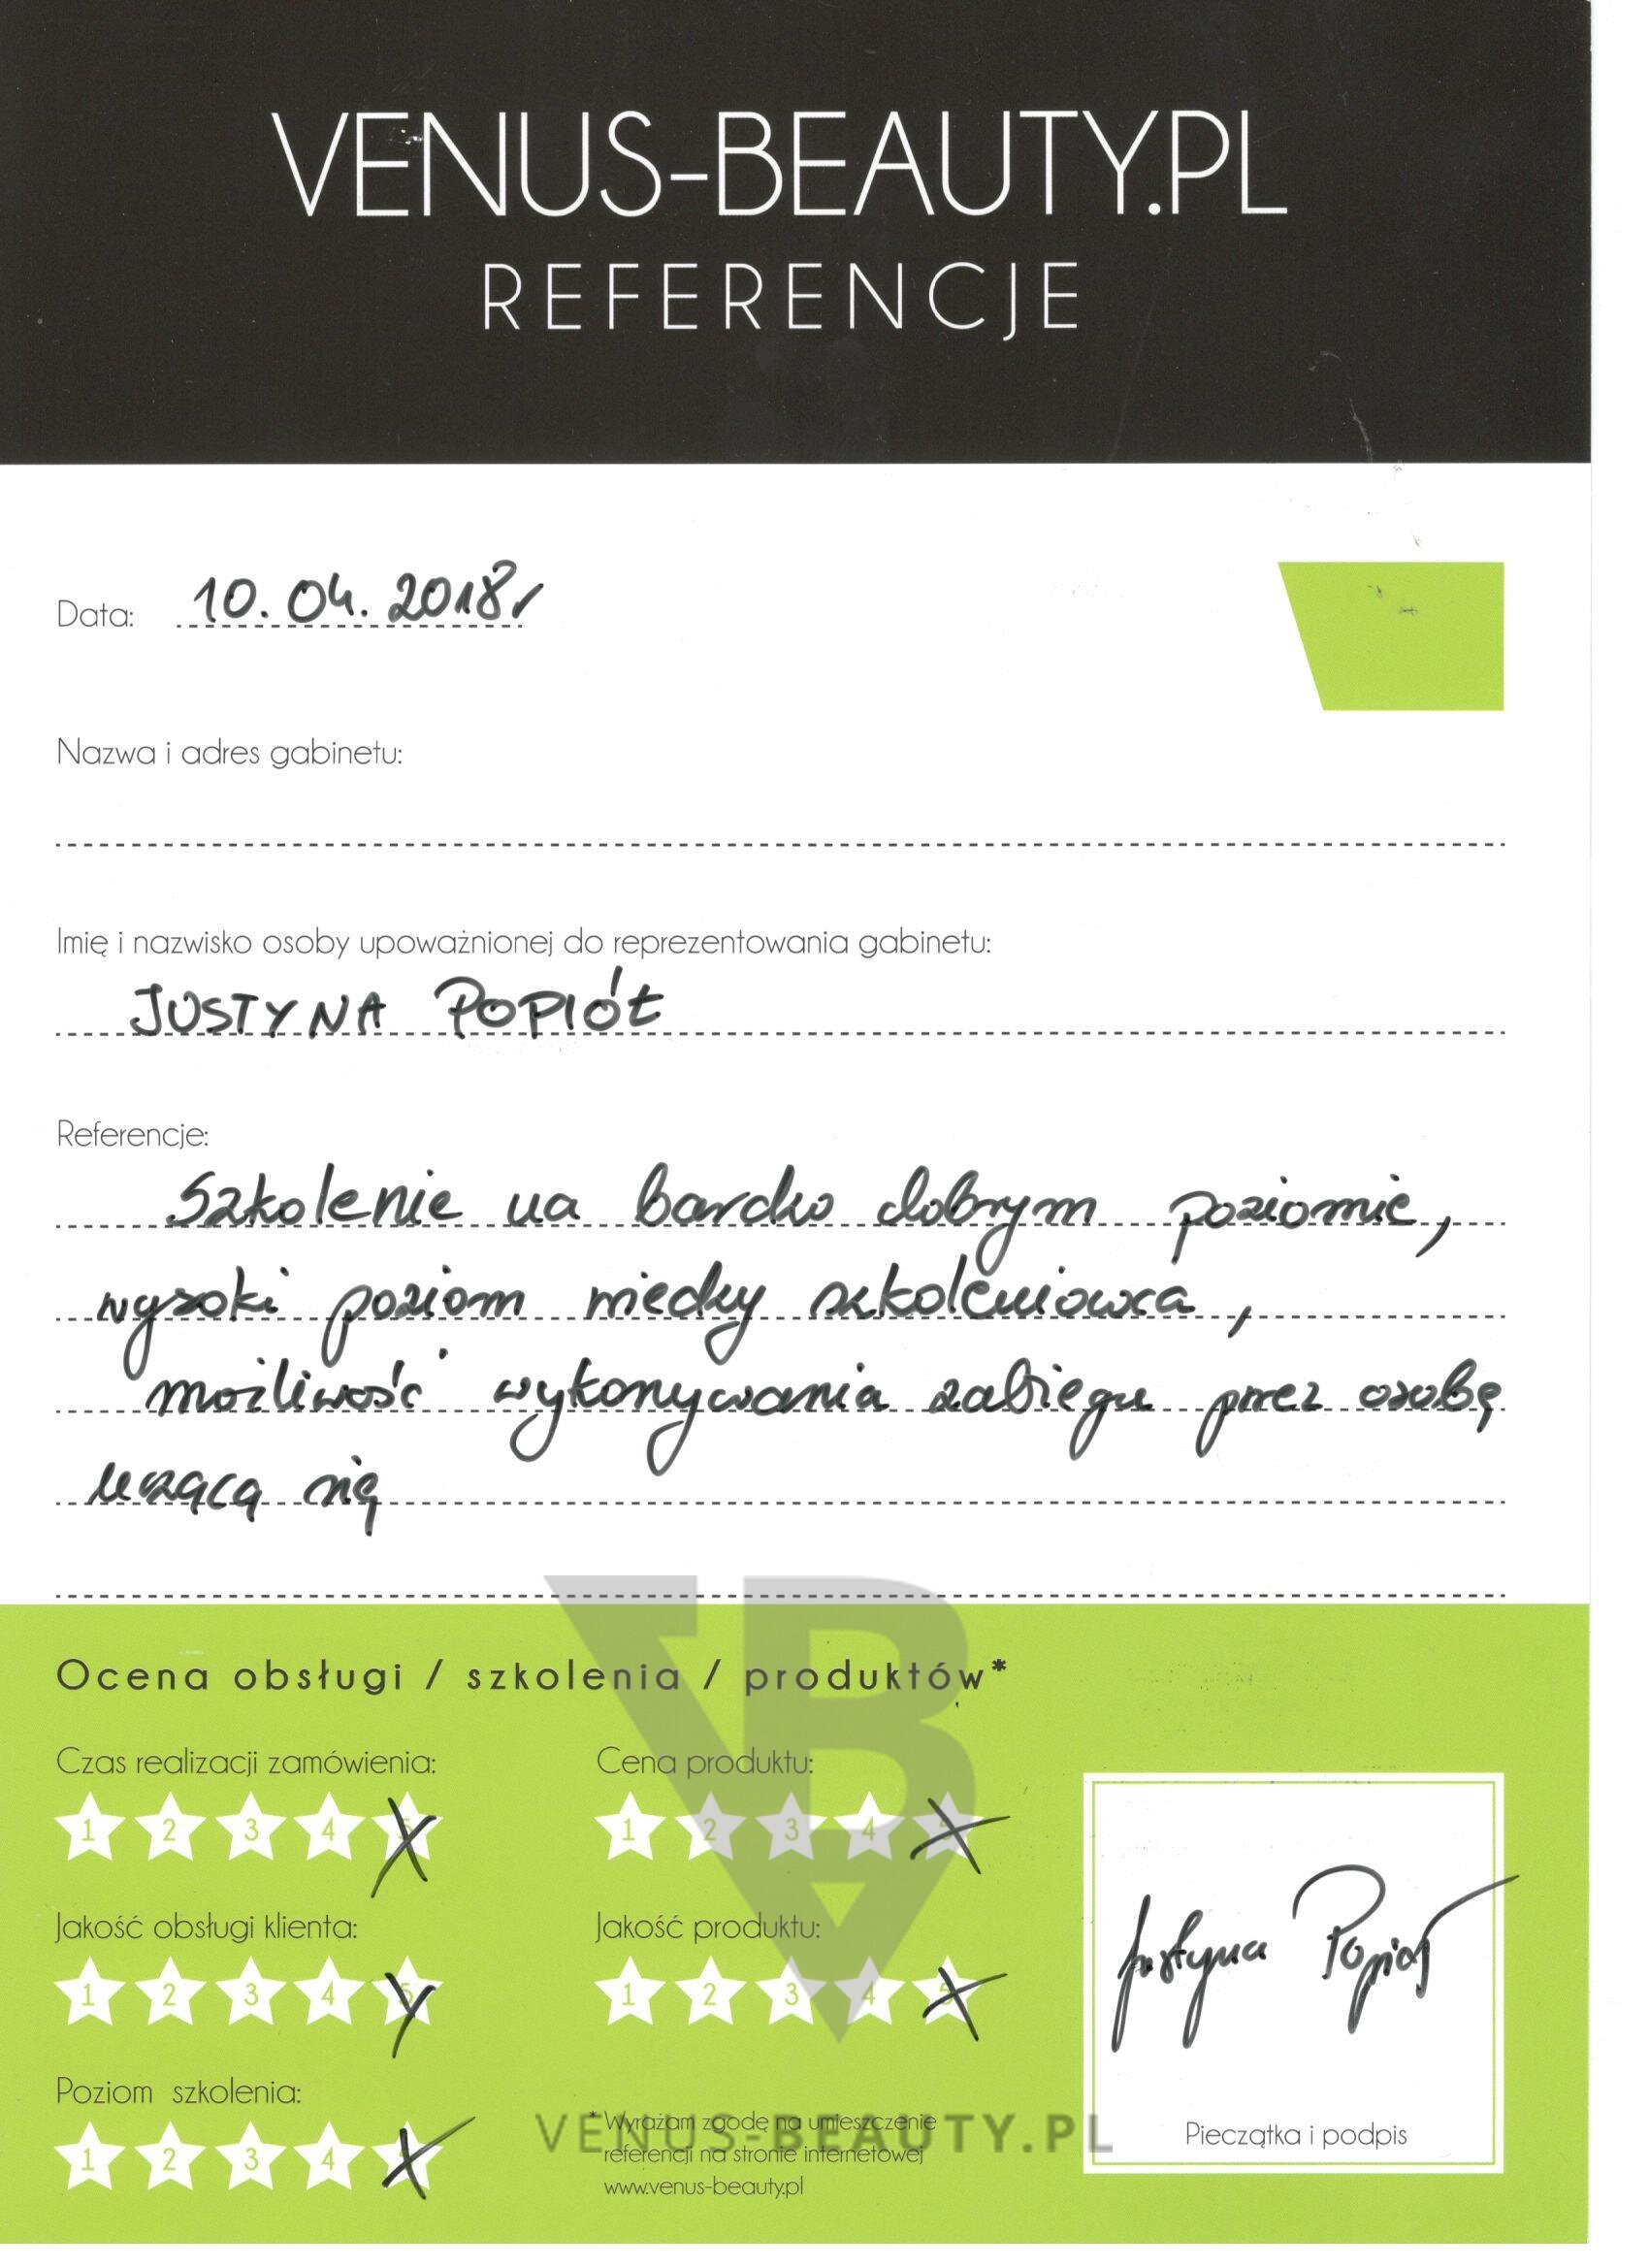 VENUS-BEAUTY.PL
REFERENCJE
Data: 10.04.2018r
Nazwa i adres gabinetu:
Imię i nazwisko osoby upoważnionej do reprezentowania gabinetu:
JUSTYNA POPIÓŁ
Referencje:
Szkolenie na bardzo dobrym poziomie,
wysoki poziom wiedzy szkoleniowca,
możliwość wykonywania zabiegu przez osobę
uczącą się
Ocena obsługi / szkolenia / produktów*
Czas realizacji zamówienia:
1 2 3 4 5
Cena produktu:
1 2 3 4 5
Jakość obsługi klienta:
1 2 3 4 5
Jakość produktu:
1 2 3 4 5
Poziom szkolenia:
1 2 3 4 5
* Wyrażam zgodę na umieszczenie
referencji na stronie internetowej
www.venus-beauty.pl
VENUS-BEAUTY.PL
Justyna Popiół
Pieczątka i podpis